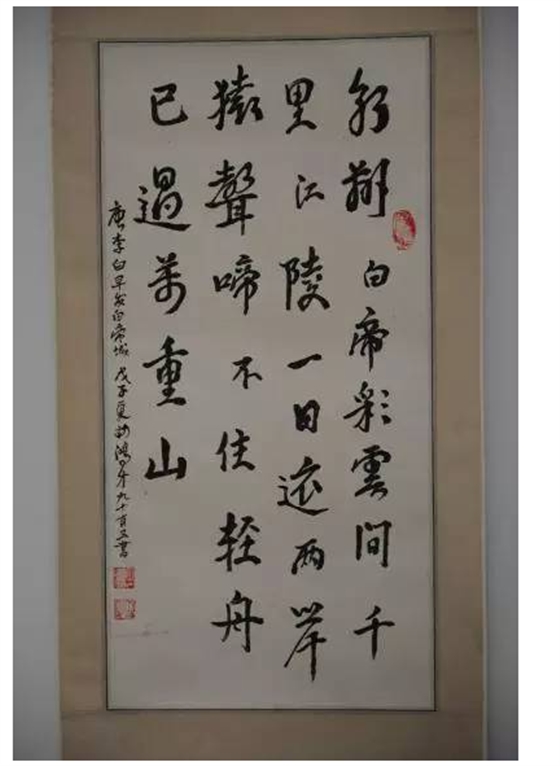 朝辭白帝彩雲間千
里江陵一日還两岸
猿聲啼不住轻舟
已過萬重山
唐李白早发白帝城 戊子夏 年九十有五書